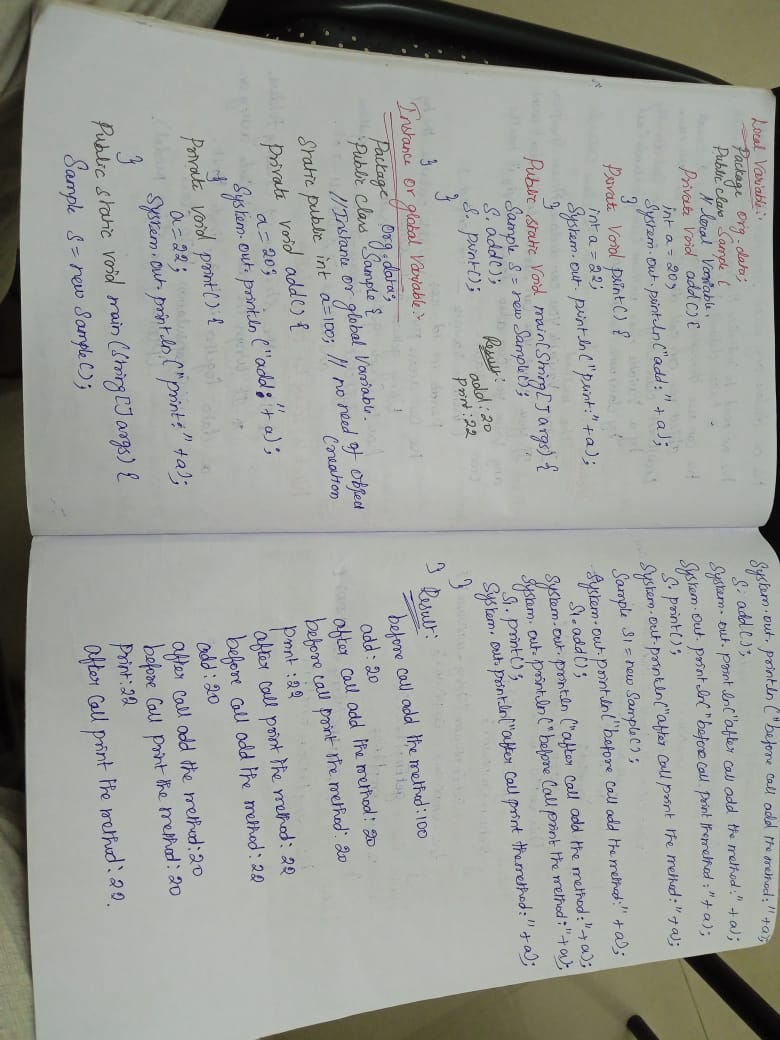 Local Variable:-
Package org.data;
Public class Sample {
// local Variable.
Private void add() {
int a = 20;
System.out.println("add:" + a);
}
Private Void print() {
int a = 22;
System.out.println("print:" + a);
}
Public static void main(String[] args) {
Sample S = new Sample();
S. add();
S. print();
}
}
Result:
add:20
Print:22
Instance or global Variable:-
Package Org.data;
Public Class Sample {
//Instance or global Variable.
Static public int a=100; // no need of Object
Creation
Private void add() {
a=20;
System.out.println("add:"+ a);
}
Private void print() {
a=22;
System.out.println("print:" +a);
}
Public static void main (String[] args) {
Sample S = new Sample();
System.out.println("before call add the method:" +a);
S. add();
System.out.println("after call add the method:" +a);
System.out.println("before call print the method:" +a);
S. print();
System.out.println("after call print the method:" +a);
Sample S1 = new Sample();
System.out.println("before call add the method:" +a);
S1.add();
System.out.println("after call add the method:"+a);
System.out.println("before call print the method:"+a);
S1.print();
System.out.println("after call print the method:" +a);
}
}
Result:
before call add the method:100
add:20
after call add the method: 20
before call print the method: 20
Print :22
after call print the method: 22
before call add the method: 22
add:20
after call add the method:20
before call print the method: 20
Print:22
after call print the method: 22.